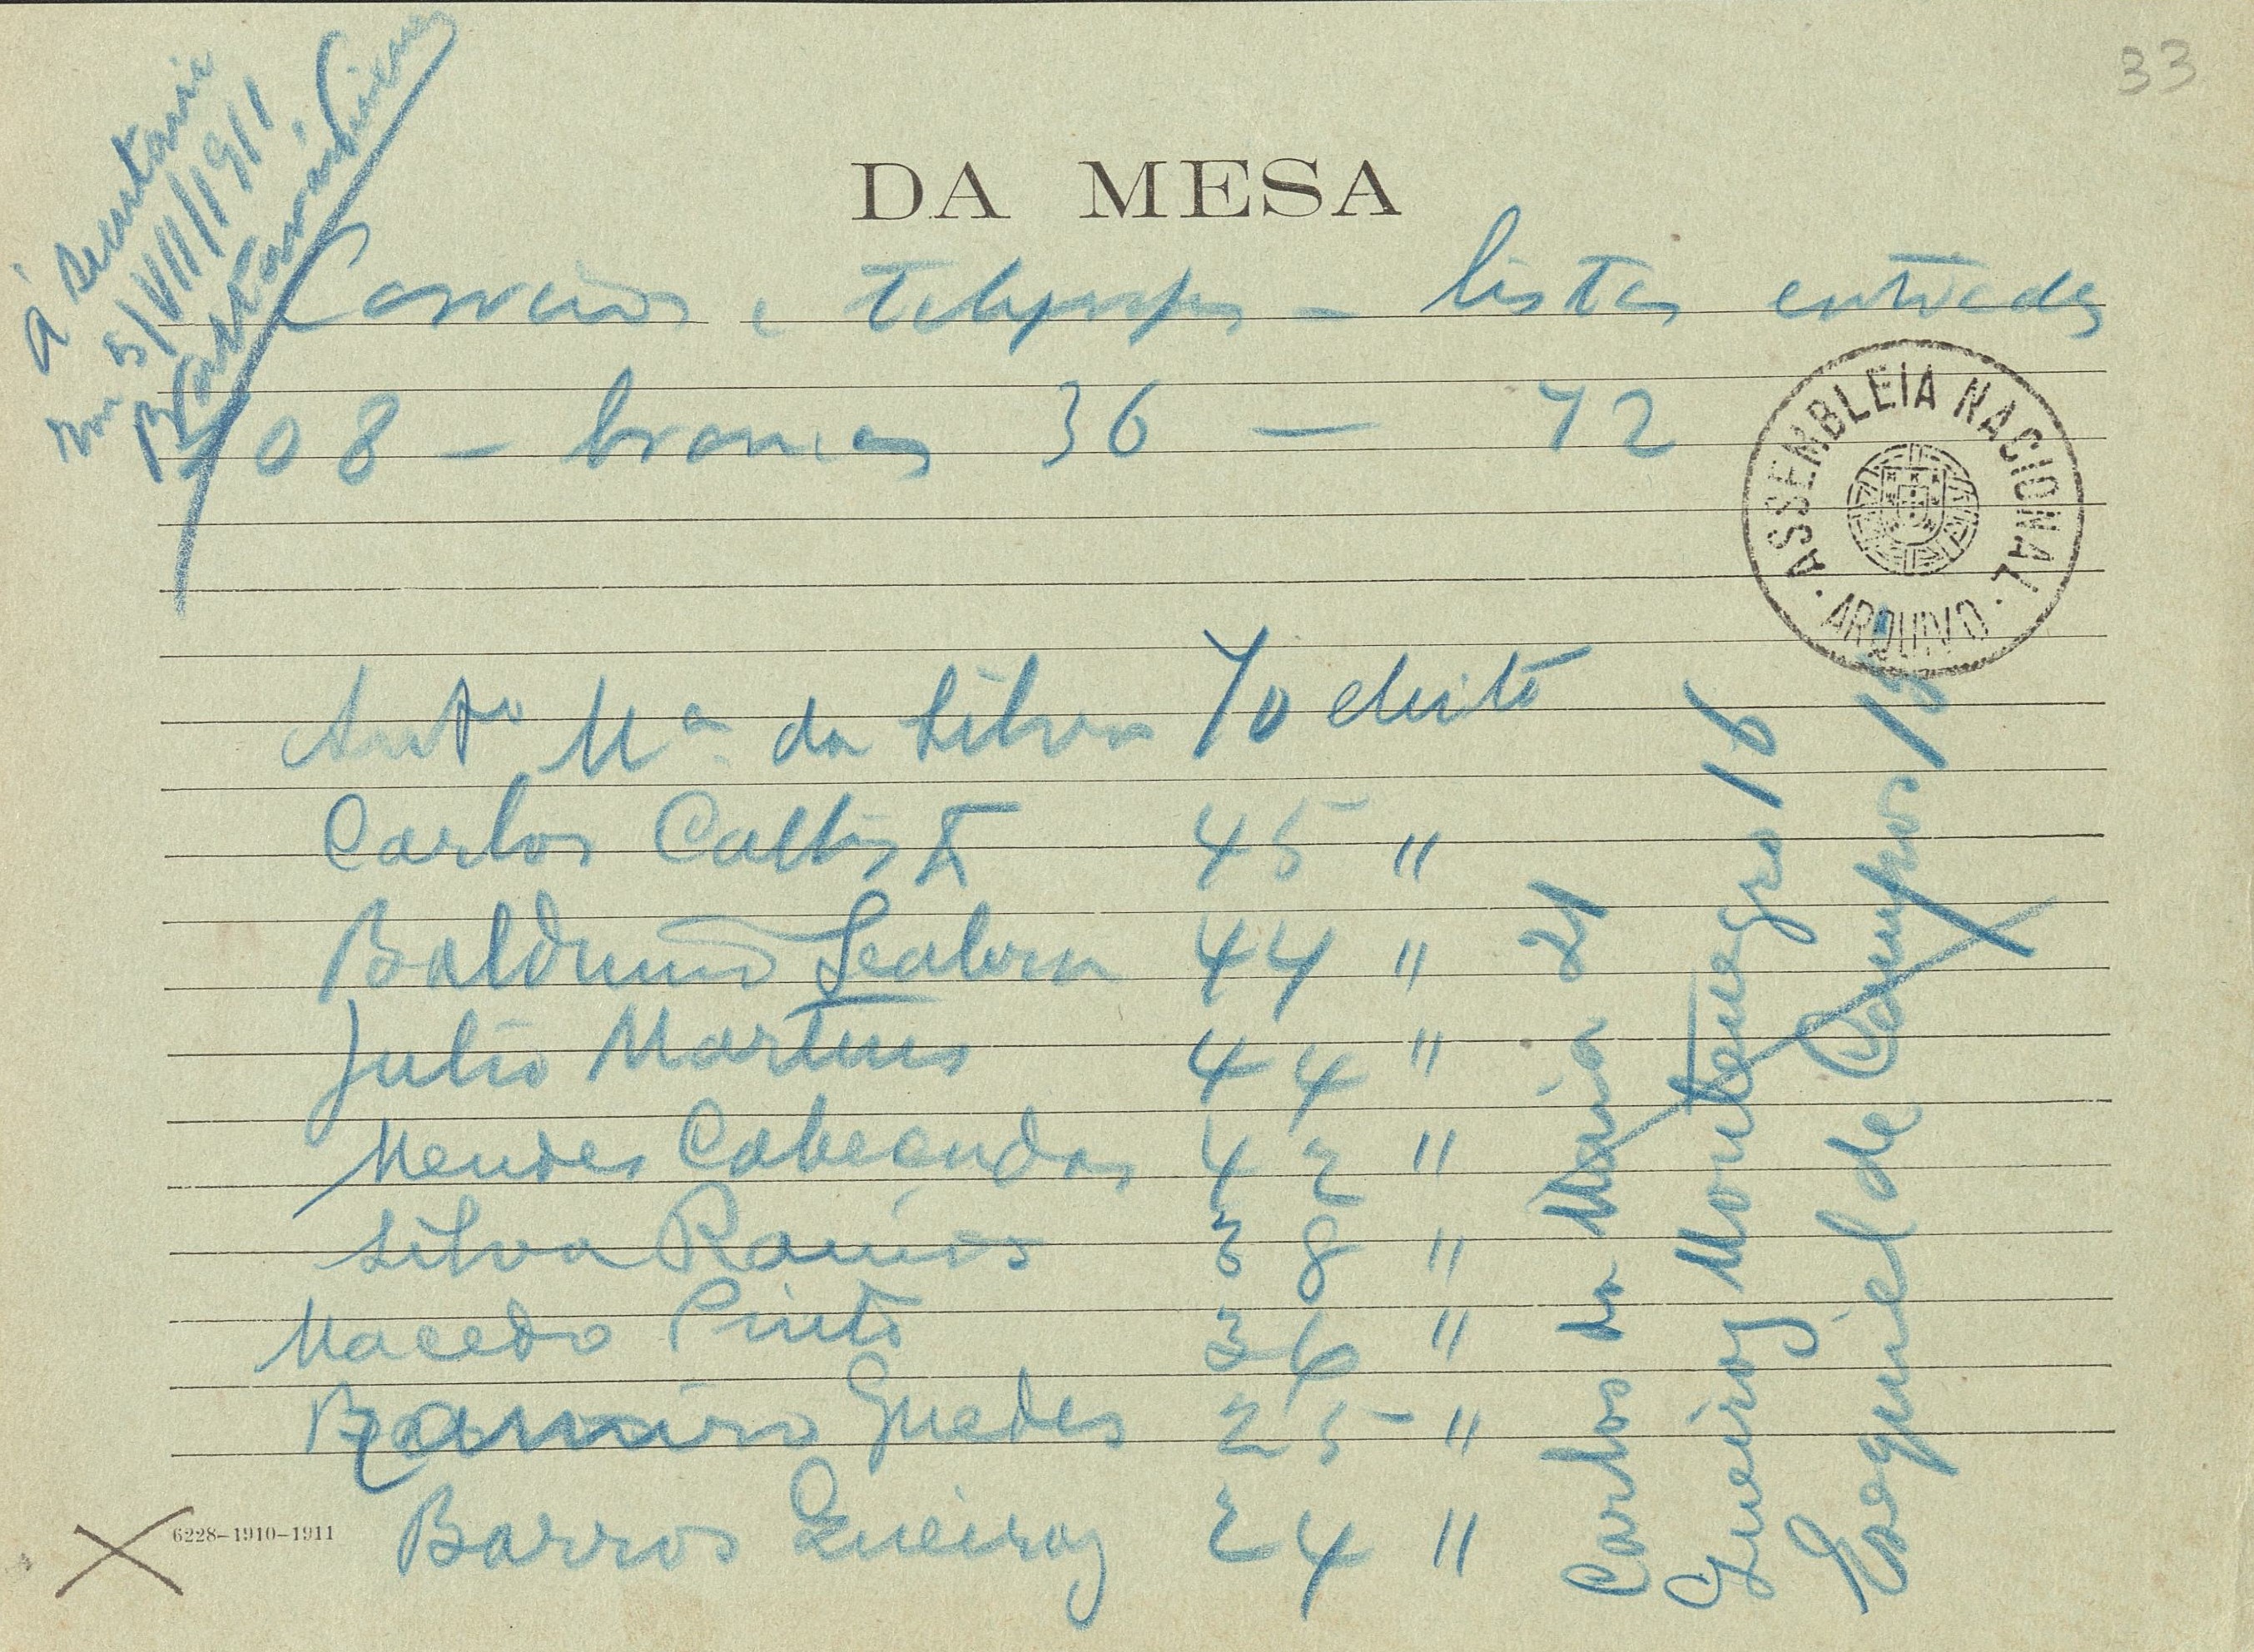 33
Á Secretaria
Em 5/VII/1911
DA MESA
Correios e Telegraphos — listas entradas
108 — brancas 36 — 72
ASSEMBLEIA NACIONAL
· ARQUIVO ·
Antº Mª da Silva 70 eleito
Carlos Callixto 45 "
Balduino Seabra 44 "
Julio Martins 44 "
Mendes Cabeçadas 42 "
Silva Ramos 38 "
Macedo Pinto 36 "
Ramiro Guedes 25 "
Barros Queiroz 24 "
Carlos da Maia 21
Queiroz Montenegro 16
Ezequiel de Campos 15
6228–1910–1911